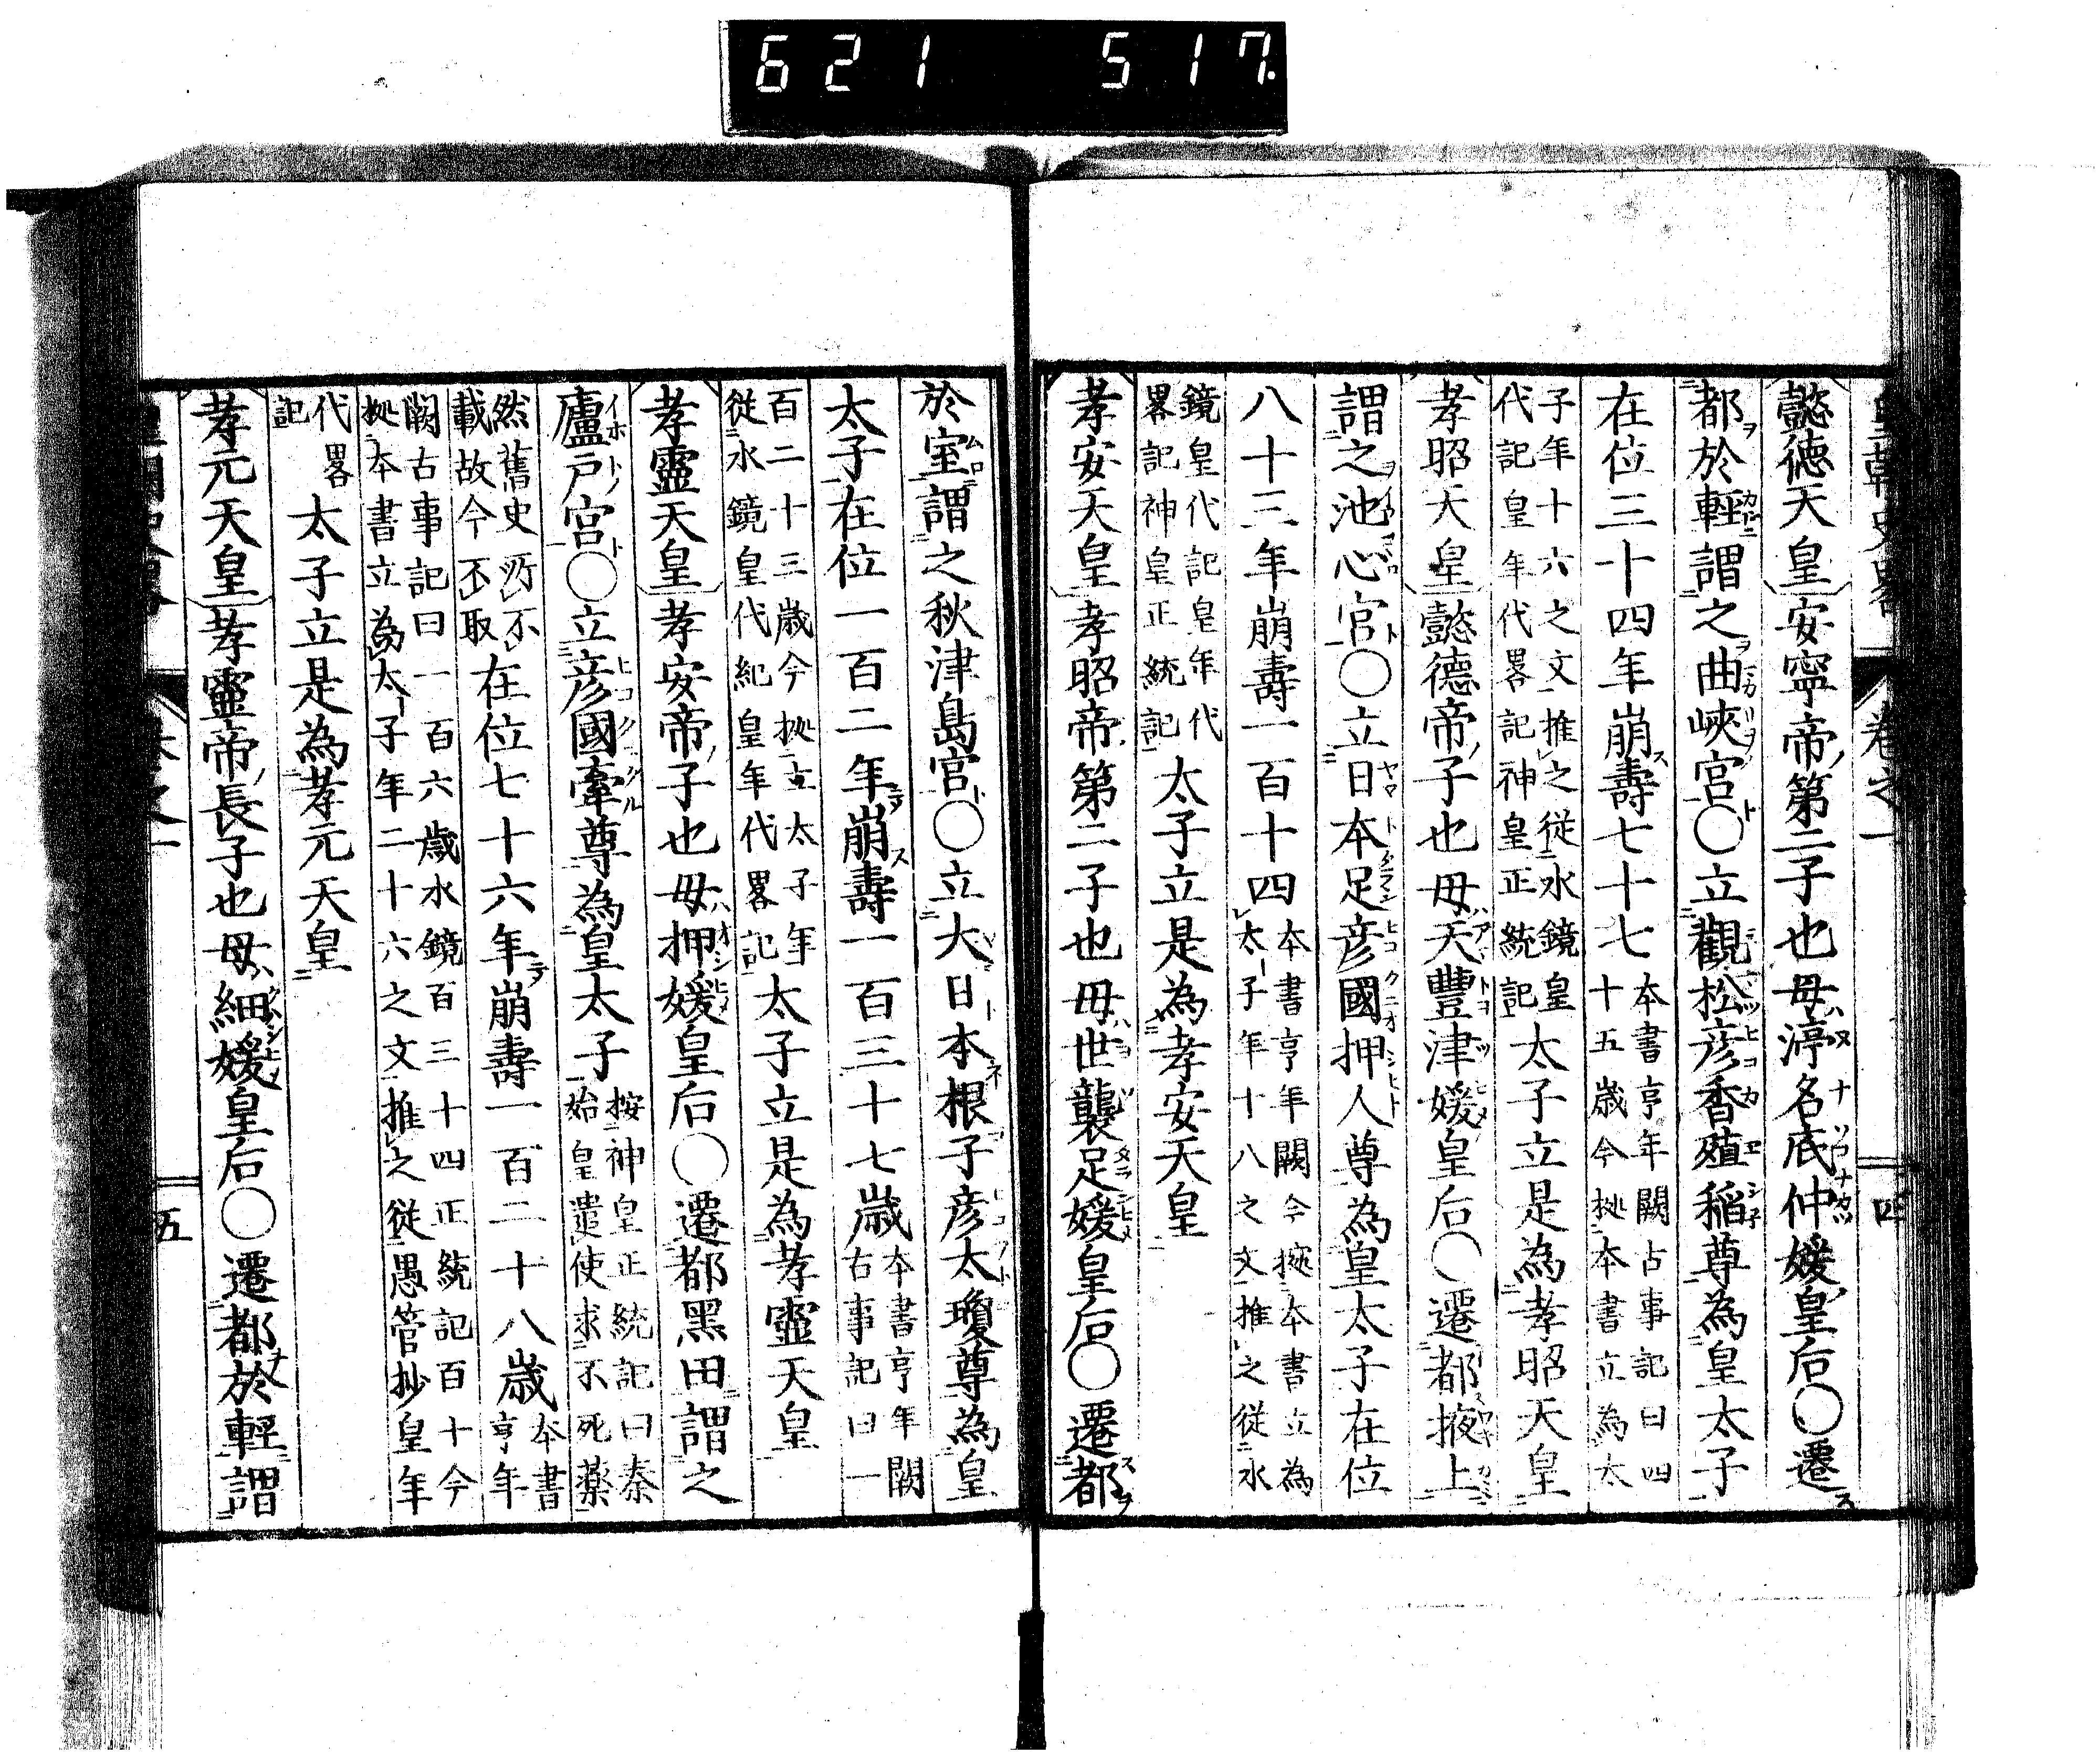 621 517.
皇朝史畧 卷之一 四
懿徳天皇 安寧帝第二子也母渟名底仲媛皇后○遷
都於輕謂之曲峽宮○立觀松彦香殖稲尊為皇太子
在位三十四年崩壽七十七 本書享年闕古事記曰四十五歳今拠本書立為太
子年十六之文推之從水鏡皇代記皇年代畧記神皇正統記 太子立是為孝昭天皇
孝昭天皇 懿德帝子也母天豐津媛皇后○遷都掖上
謂之池心宮○立日本足彦國押人尊為皇太子在位
八十三年崩壽一百十四 本書享年闕今據本書立為太子年十八之文推之從水
鏡皇代記皇年代畧記神皇正統記 太子立是為孝安天皇
孝安天皇 孝昭帝第二子也母世襲足媛皇后○遷都
於室謂之秋津島宮○立大日本根子彦太瓊尊為皇
太子在位一百二年崩壽一百三十七歳 本書享年闕古事記曰一
百二十三歳今拠立太子年從水鏡皇代紀皇年代畧記 太子立是為孝靈天皇
孝靈天皇 孝安帝子也母押媛皇后○遷都黑田謂之
廬戸宮○立彦國牽尊為皇太子 按神皇正統記曰秦始皇遣使求不死藥
然舊史所不載故今不取 在位七十六年崩壽一百二十八歳 本書享年
闕古事記曰一百六歳水鏡百三十四正統記百十今拠本書立為太子年二十六之文推之從愚管抄皇年
代畧記 太子立是為孝元天皇
孝元天皇 孝靈帝長子也母細媛皇后○遷都於輕謂
五